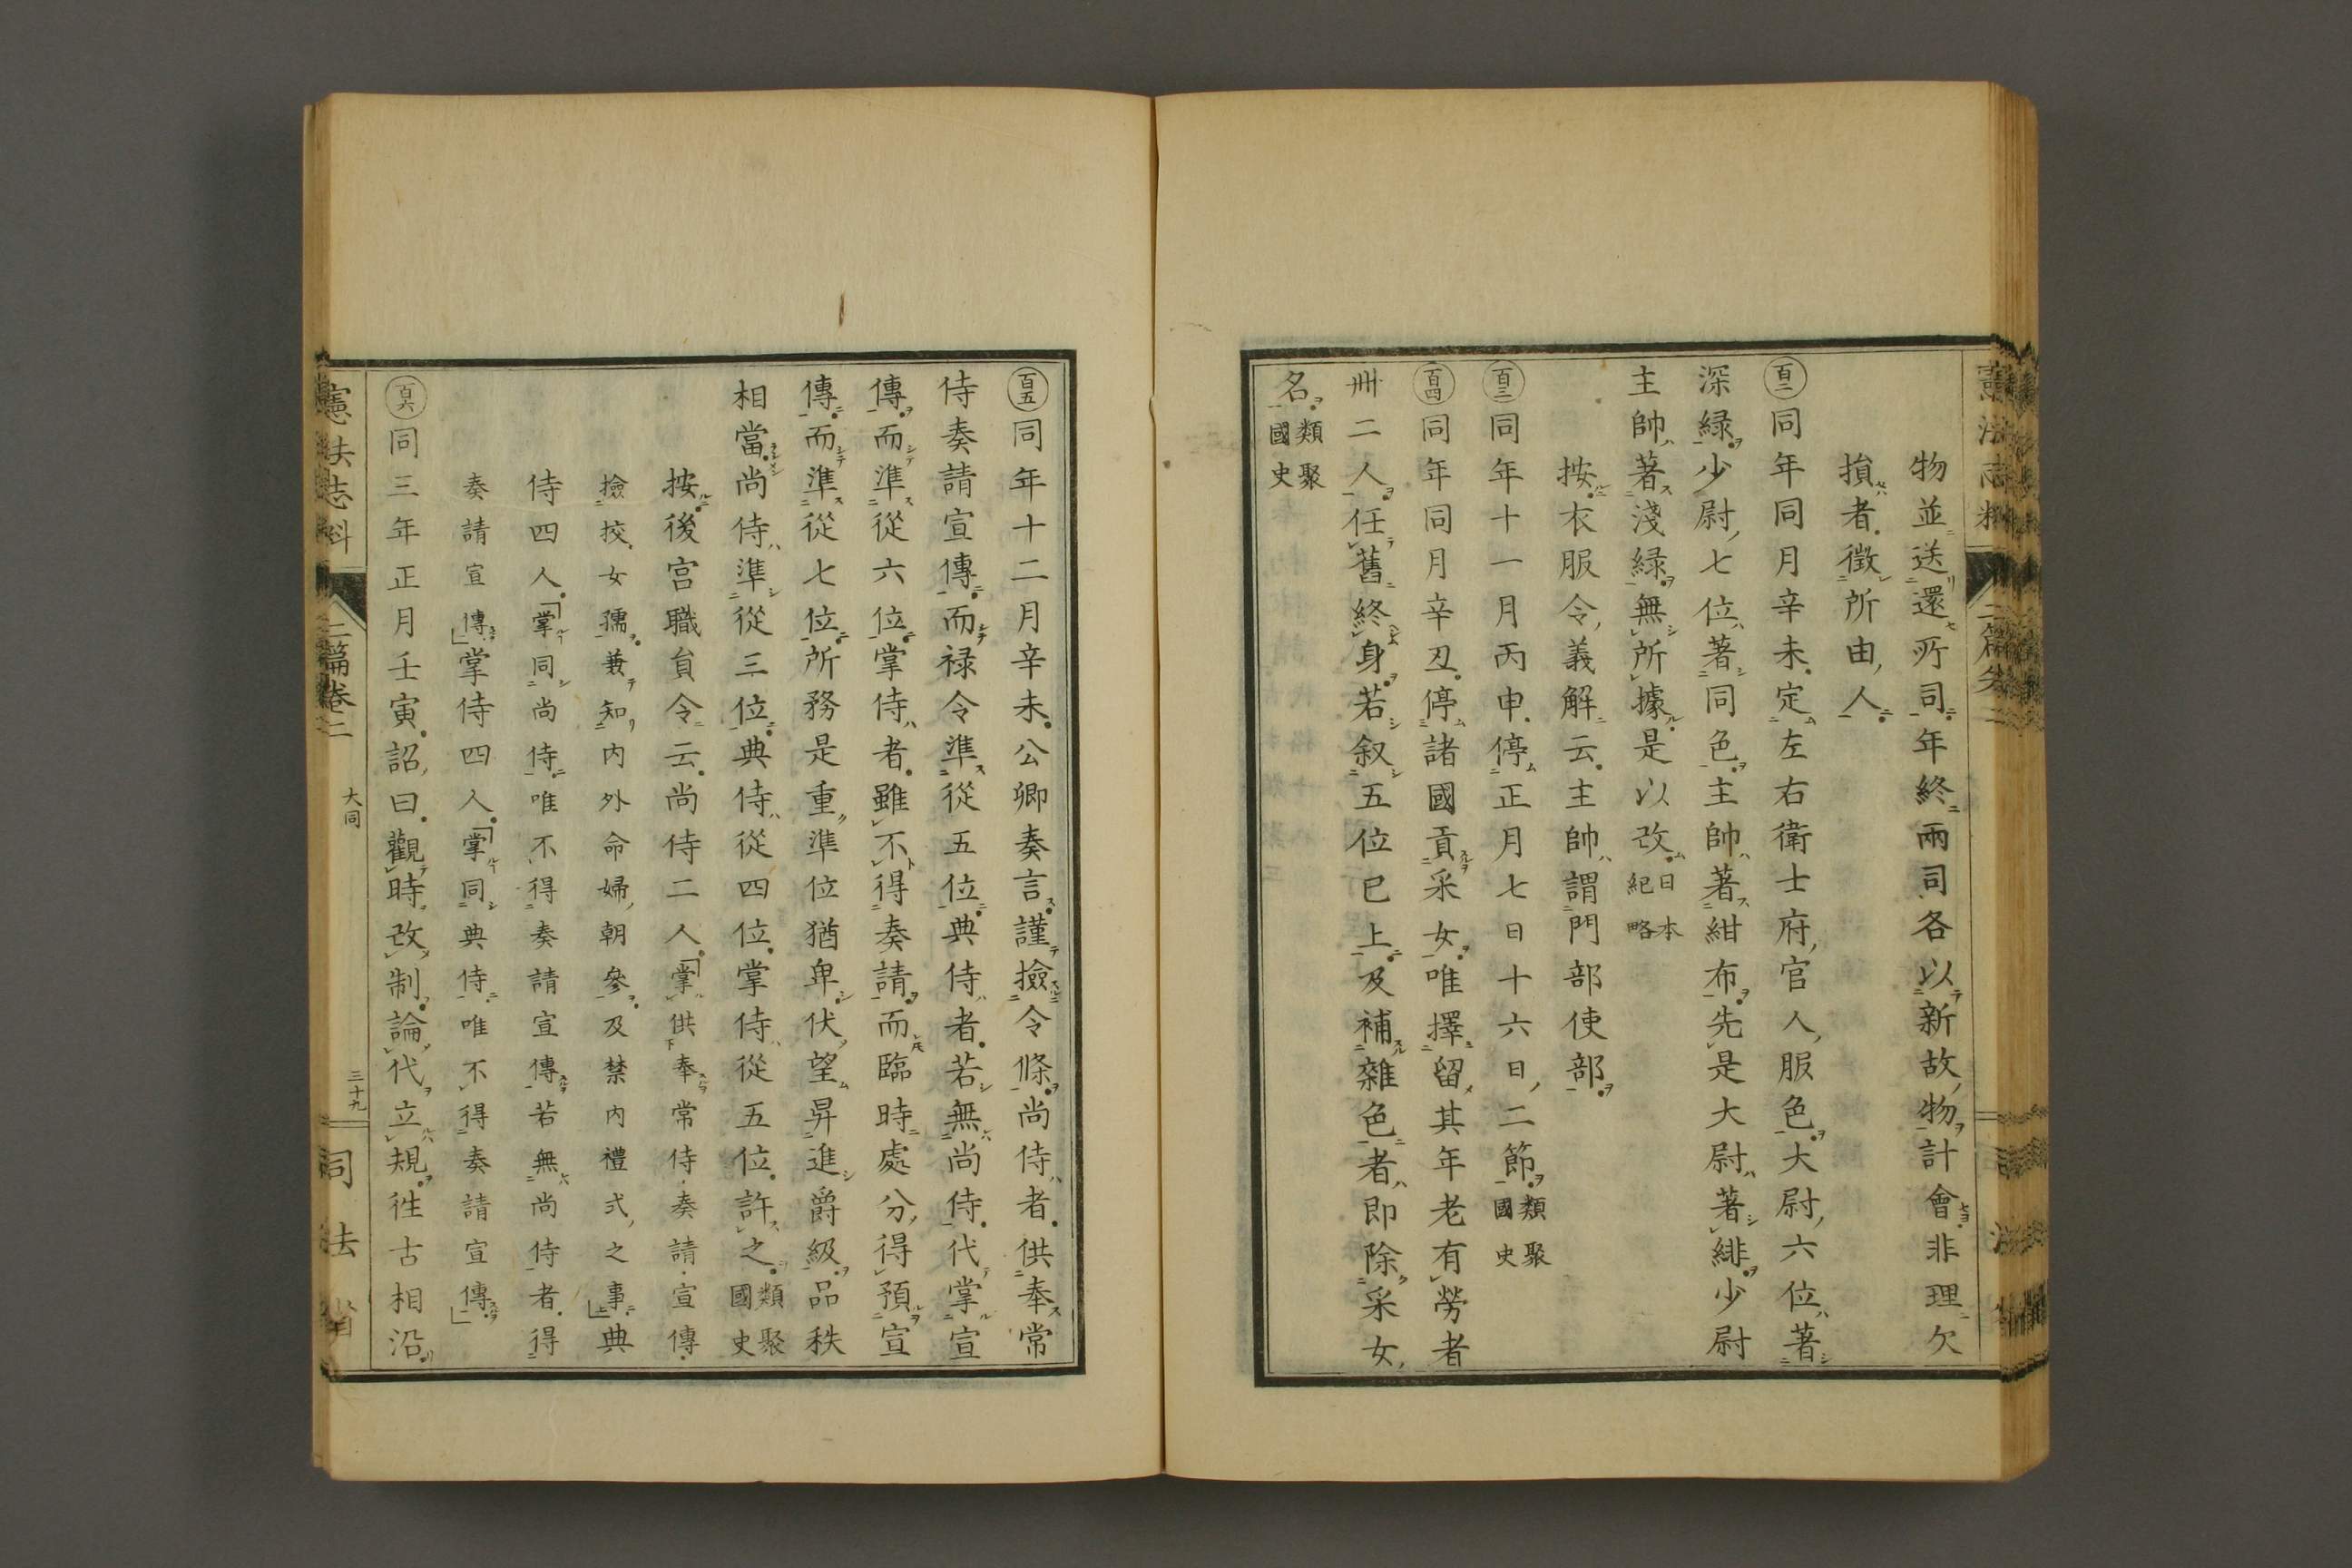 物並送還所司年終兩司各以新故物計會非理欠
損者徴所由人
百二 同年同月辛未定左右衛士府官人服色大尉六位著
深緑少尉七位著同色主帥著紺布先是大尉著緋少尉
主帥著淺緑無所據是以改 日本紀略
按衣服令義解云主帥謂門部使部
百三 同年十一月丙申停正月七日十六日二節 類聚國史
百四 同年同月辛丑停諸國貢采女唯擇留其年老有勞者
卌二人任舊終身若叙五位已上及補雜色者即除采女
名 類聚國史
百五 同年十二月辛未公卿奏言謹撿令條尚侍者供奉常
侍奏請宣傳而禄令準從五位典侍者若無尚侍代掌宣
傳而準從六位掌侍者雖不得奏請而臨時處分得預宣
傳而準從七位所務是重準位猶卑伏望昇進爵級品秩
相當尚侍準從三位典侍從四位掌侍從五位許之 類聚國史
按後宮職員令云尚侍二人「掌供奉常侍奏請宣傳
撿挍女孺兼知内外命婦朝參及禁内禮式之事」典
侍四人「掌同尚侍唯不得奏請宣傳若無尚侍者得
奏請宣傳」掌侍四人「掌同典侍唯不得奏請宣傳」
百六 同三年正月壬寅詔曰觀時改制論代立規往古相沿
憲法志料 二篇卷二 大同 三十九 司法省